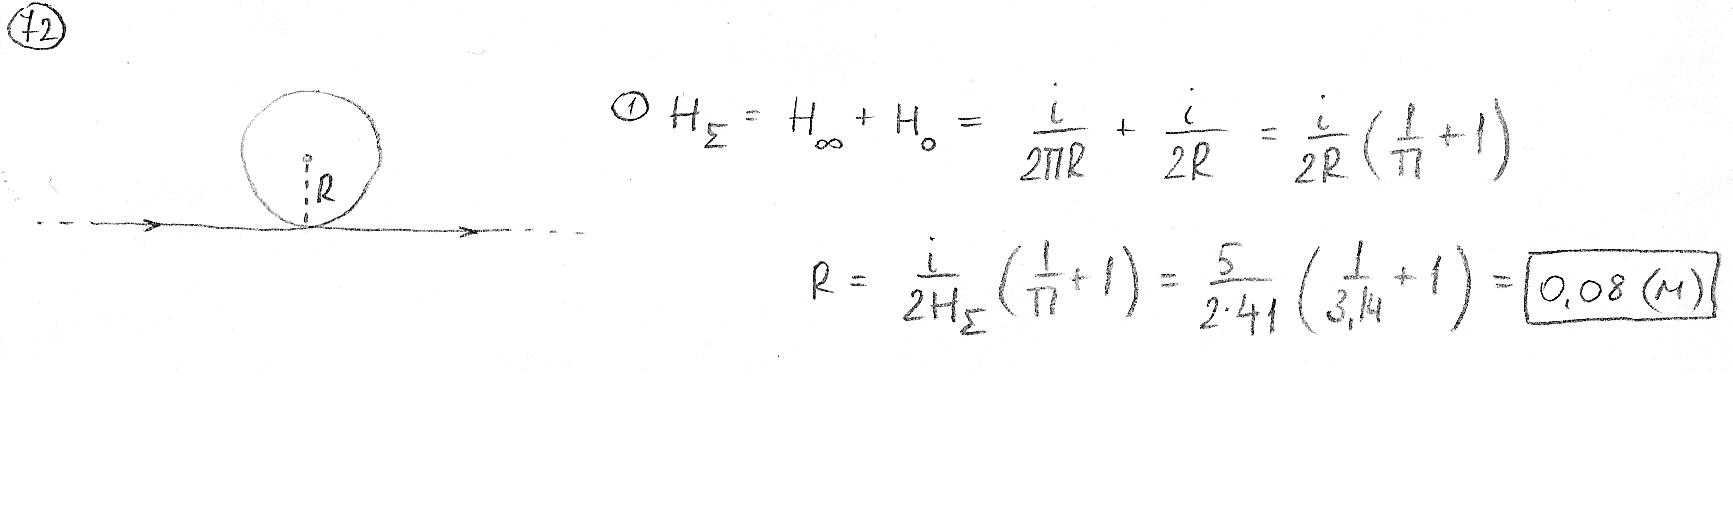 72
R
① H_Σ = H_∞ + H_0 = i/(2πR) + i/(2R) = i/(2R) (1/π + 1)
R = i/(2H_Σ) (1/π + 1) = 5/(2·41) (1/3,14 + 1) = 0,08 (м)